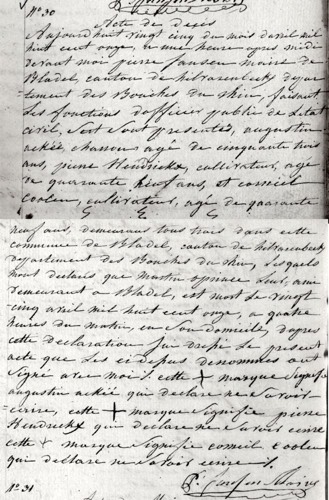 N° 30
Acte de deces
Aujourdhuit vingt cinq du mois davril mil
huit cent onze, a une heure apres midi
devant moi pierre Jansen maire de
Bladel, canton de hilvarenbeek depar
tement des Bouches du rhin, faisant
Les fonctions dofficier public de Letat
civil, Sont presentés, augustin
ackée, agé de cinquante trois
ans, pierre Hendrickx, cultivateur, agé
de quarante neuf ans, et corneil
coolen, cultivateur, agé de quarante
neuf ans, demeurant tous trois dans cette
commune de Bladel, canton de hilvarenbeek
Departement des Bouches du rhin, Lesquels
mont declarés que martin
demeurant a Bladel, est mort Le vingt
cinq avril mil huit cent onze, a quatre
heures du matin, en Son domicile, dapres
cette declaration Jai dressé Le present
acte que Les ci depus denommés ont
Signé avec moi /. cette + marque Signifie
augustin ackée qui declare ne Savoir
ecrire, cette + marque Signifie pierre
Hendrickx qui declare ne Savoir ecrire
cette + marque Signifie corneil coolen
qui declare ne Savoir ecrire /.
P. Jansen Maire
N° 31